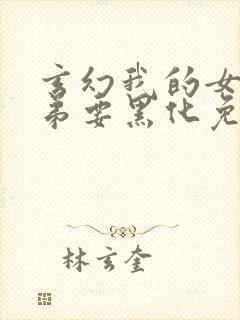 玄幻我的女
弟要黑化免
林玄奎